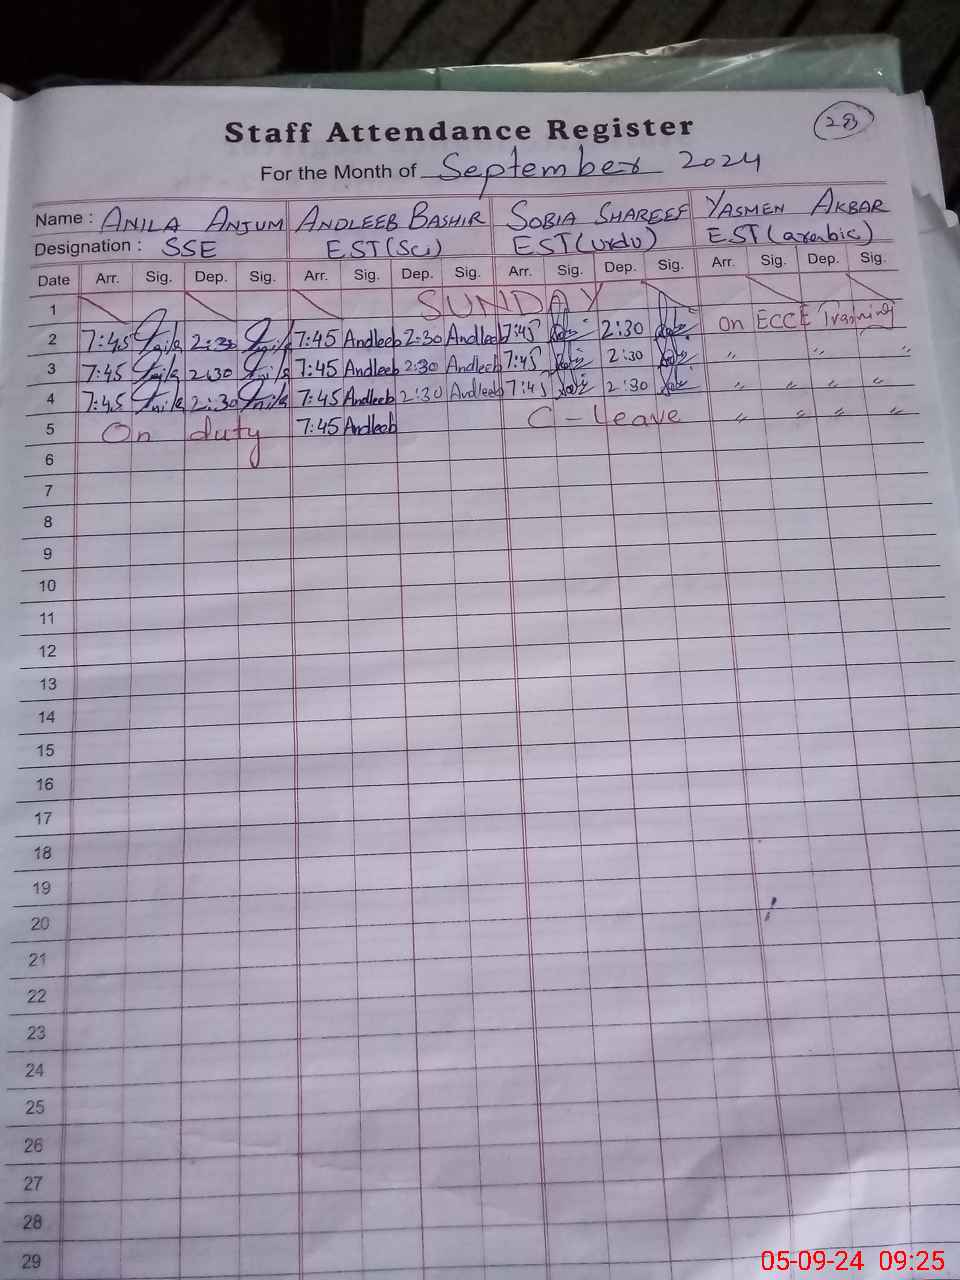 28
Staff Attendance Register
For the Month of September 2024
Name : ANILA ANJUM ANDLEEB BASHIR SOBIA SHAREEF YASMEN AKBAR
Designation : SSE EST(Sc) EST(urdu) EST(arabic)
Date Arr. Sig. Dep. Sig. Arr. Sig. Dep. Sig. Arr. Sig. Dep. Sig. Arr. Sig. Dep. Sig.
1 SUNDAY
2 7:45 2:30 7:45 Andleeb 2:30 Andleeb 7:45 2:30 On ECCE Training
3 7:45 2:30 7:45 Andleeb 2:30 Andleeb 7:45 2:30 " " "
4 7:45 2:30 7:45 Andleeb 2:30 Andleeb 7:45 2:30 " " " "
5 On duty 7:45 Andleeb C-Leave " " " "
6
7
8
9
10
11
12
13
14
15
16
17
18
19
20
21
22
23
24
25
26
27
28
29
05-09-24 09:25